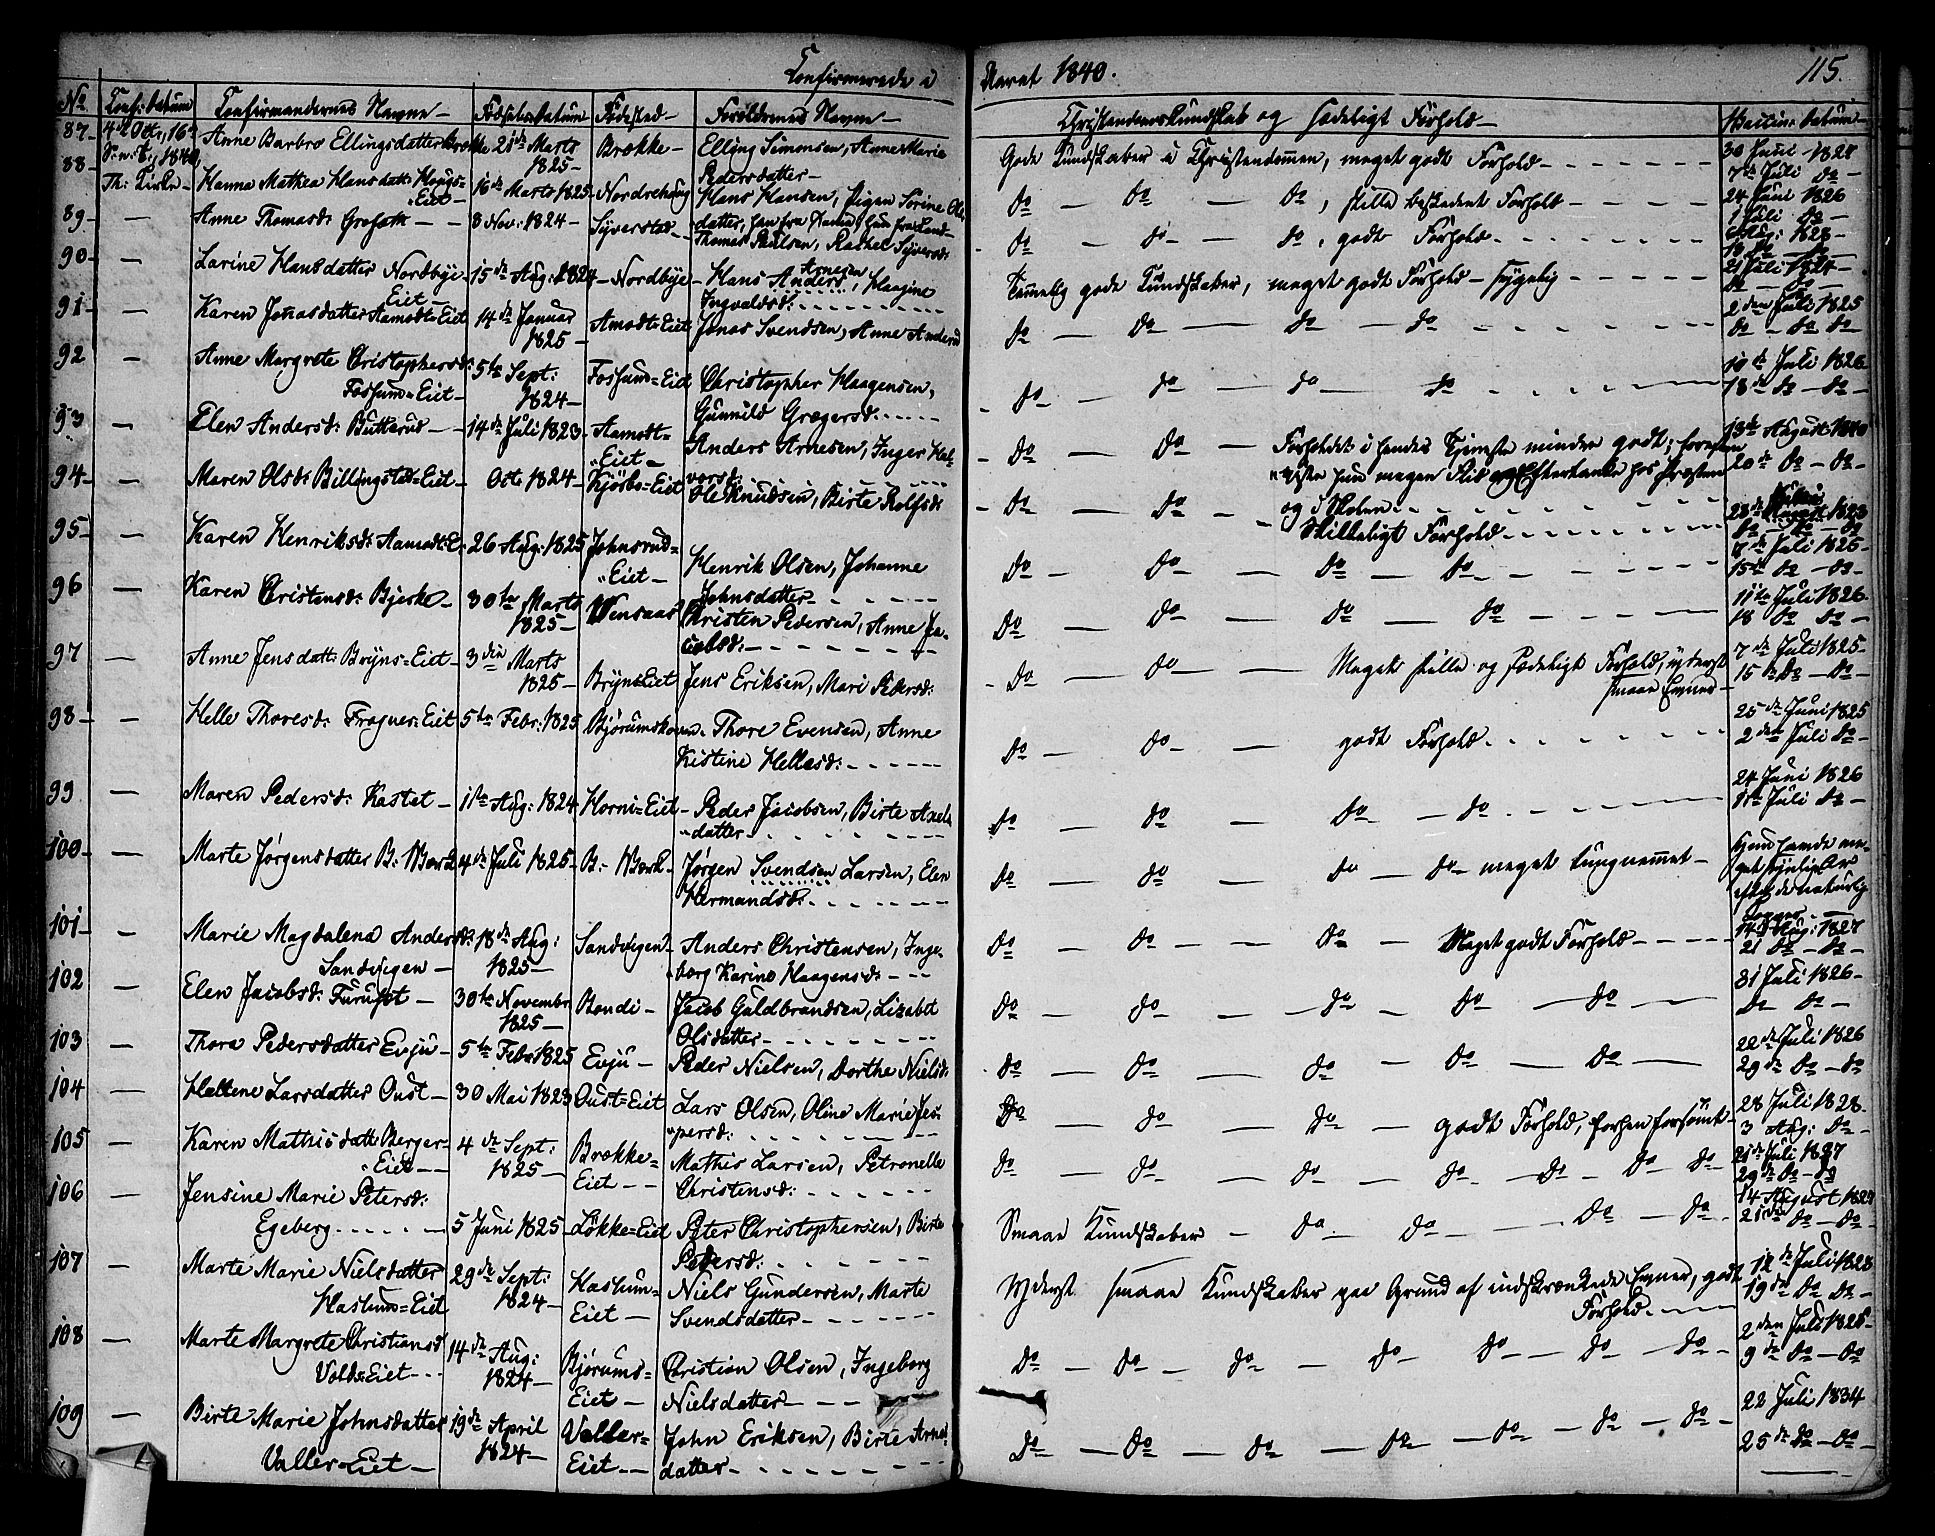 Confirmerede i Aaret 1840.
115.
No Conf: Datum Confirmandernes Navne Fødsels-Datum Fødested Forældrenes Navne Christendomskundskab og sædeligt Forhold Vaccine Datum
87 4de Oct., 16de S. n. T., 1840, Th: Kirken Anne Barbro Ellingsdatter Brække 21de Marts 1825 Brække Elling Simonsen, Anne Marie Pedersdatter Gode Kundskaber i Christendommen, meget godt Forhold 30 Juni 1828 7de Juli do
88 Hanna Mathea Hansdatt: Haugs-Eiet 16de Marts 1825 Nordrehaug Hans Hansen, Pigen Sorine Olsdatter, do do do, stille beskedent Forhold 24 Juni 1826 1 Juli do
89 Anne Thomasd: Grosæth 8 Nov: 1824 Syverstad Thomas Paulsen, Rachel Syversd: do do do, godt Forhold Aug: 1828
90 Larine Hansdatter Nordbye-Eiet 15de Aug: 1824 Nordbye Hans Anders Arnesen, Haagine Ingvaldsd: Temmelig gode Kundskaber, meget godt Forhold – sygelig 21 Juli 1824 do do
91 Karen Jonasdatter Aamodt-Eiet 14de Januar 1825 Amodt-Eiet Jonas Svendsen, Anne Andersd do do do do 2den Juli 1825 do do do
92 Anne Margrete Christophersd: Fossum-Eiet 5te Sept: 1824 Fossum-Eiet Christopher Haagensen, Gunnild Grægersd: do do do do 10de Juli 1826 18de do do
93 Elen Andersd: Butterud 14de Juli 1823 Aamodt-Eiet Anders Arnesen, Inger Halvorsd: do do Forholdet i hendes Tjeneste mindre godt; viste hun megen Flid og Eftertanke hos Præsten og i Skolen 13de August 1840 20de do do
94 Maren Olsd: Billingstad-Eiet Oct: 1824 Kjørbo-Eiet Ole Knudsen, Birte Rolfsd: do do Skikkeligt Forhold 28de 1823 do do do
95 Karen Henriksd: Aamodt-E. 26 Aug: 1825 Johnsrud-Eiet Henrik Olsen, Johanne Johnsdatter do do do do 7de Juli 1825 15de do do
96 Karen Christensd: Bjerke 30te Marts 1825 Wensaas Christen Pedersen, Anne Jacobsd: do do do do 11te Juli 1826 18 do do
97 Anne Jensdatt: Bryns-Eiet 3die Marts 1825 Bryns-Eiet Jens Eriksen, Mari Pedersd: do do Meget stille og sædeligt Forhold, yderst smaae Evner 7de Juli 1825 15 do do
98 Helle Thoresd: Frogner-Eiet 5te Febr: 1825 Bjørumskoven Thore Evensen, Anne Kistine Hellesd: do do godt Forhold 25de Juni 1825 2den Juli do
99 Maren Pedersd: Kastet 11te Aug: 1824 Horni-Eiet Peder Jacobsen, Birte Axelsdatter do do do do 24 Juni 1826 1ste Juli do
100 Marte Jørgensdatter B: Wærk 24de Juli 1825 B: Wærk Jørgen Svendsen Larsen, Elen Hermandsd: do do do do meget tungnemmet Hun havde meget kjenlige Ar efter de naturlige Kopper
101 Marie Magdalena Andersd: Sandvigen 18de Aug: 1825 Sandvigen Anders Christensen, Ingeborg Karine Haagensd: do do do Meget godt Forhold 14de Aug: 1827 21 do do
102 Elen Jacobsd: Furuset 30te Novembr: 1825 Bondi Jacob Guldbrandsen, Lizabet Olsdatter do do do do do 31 Juli 1826 do do
103 Thora Pedersdatter Evju 5te Febr 1825 Evju Peder Nielsen, Dorthe Nielsd: do do do do do 22de Juli 1826 29de do do
104 Hellene Larsdatter Oust 30 Mai 1823 Oust-Eiet Lars Olsen, Oline Marie Jespersd: do do do godt Forhold, forhen forsømt 28 Juli 1828 3 Aug: do
105 Karen Mathisdatt: Berger-Eiet 4de Sept: 1825 Brække-Eiet Mathis Larsen, Petronelle Christensd: do do do do do do do 21de Juli 1827 29de do do
106 Jensine Marie Petersd: Egeberg 5 Juni 1825 Løkke-Eiet Peter Christophersen, Birte Pedersd: Smaae Kundskaber do do do do 14 August 1829 21de do do
107 Marte Marie Nielsdatter Haslum-Eiet 29de Sept: 1824 Haslum-Eiet Niels Gundersen, Marte Svendsdatter Yderst smaae Kundskaber paa Grund af indskrænkede Evner, godt Forhold 12de Juli 1828 19de do do
108 Marte Margrete Christiansd Volds-Eiet 14de Aug: 1824 Bjørums-Eiet Christian Olsen, Ingeborg Nielsdatter do do do do do do do 2den Juli 1825 9de do do
109 Birte Marie Johnsdatter Valler-Eiet 19de April 1824 Valler-Eiet John Eriksen, Birte Arnesdatter do do do do do do do 22 Juli 1834 25de do do